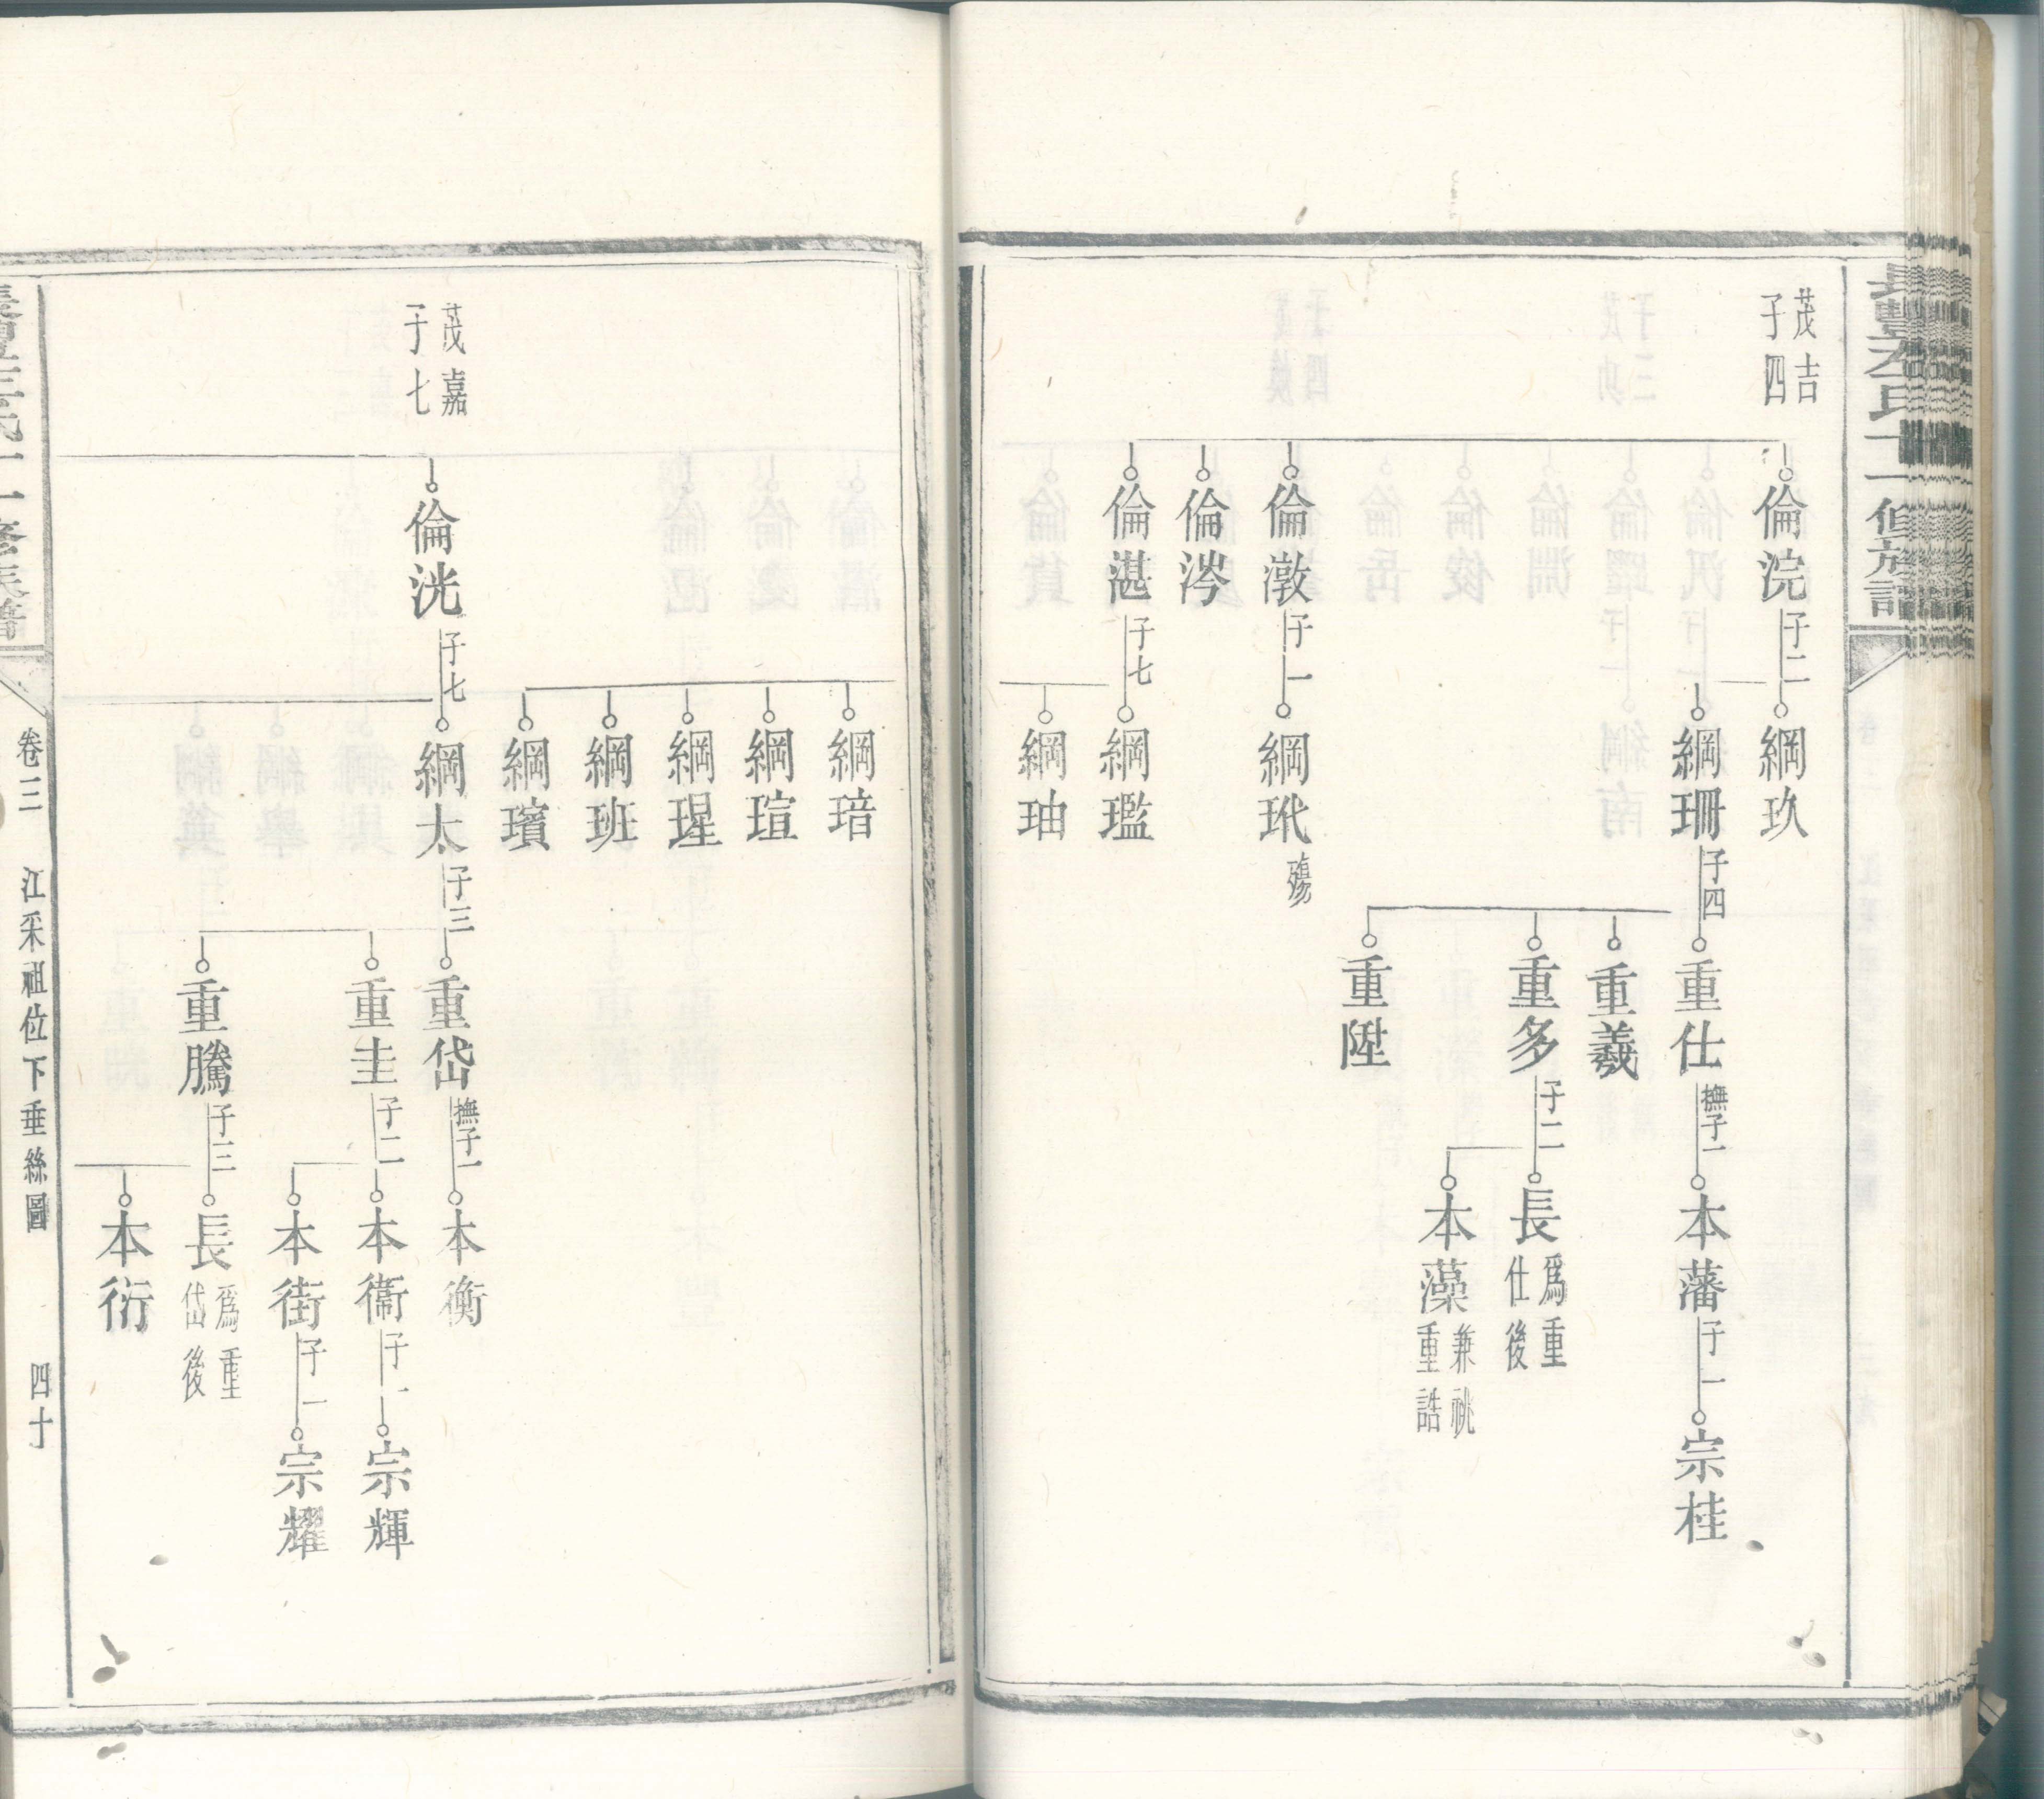 茂吉
子四
倫浣
子二
綱玖
綱珊
子四
重仕
撫子一
本藩
子一
宗桂
重羲
重多
子二
長
爲重
仕後
本藻
兼祧
重誥
重陞
倫澂
子一
綱玳
殤
倫涔
倫湛
子七
綱㻑
綱㚬
綱琣
綱瑄
綱瑆
綱班
綱璸
茂嘉
子七
倫洸
子七
綱太
子三
重岱
撫子一
本衡
重圭
子二
本衞
子一
宗輝
本街
子一
宗耀
重騰
子三
長
爲重
岱後
本衍
卷三
江采祖位下垂絲圖
四十